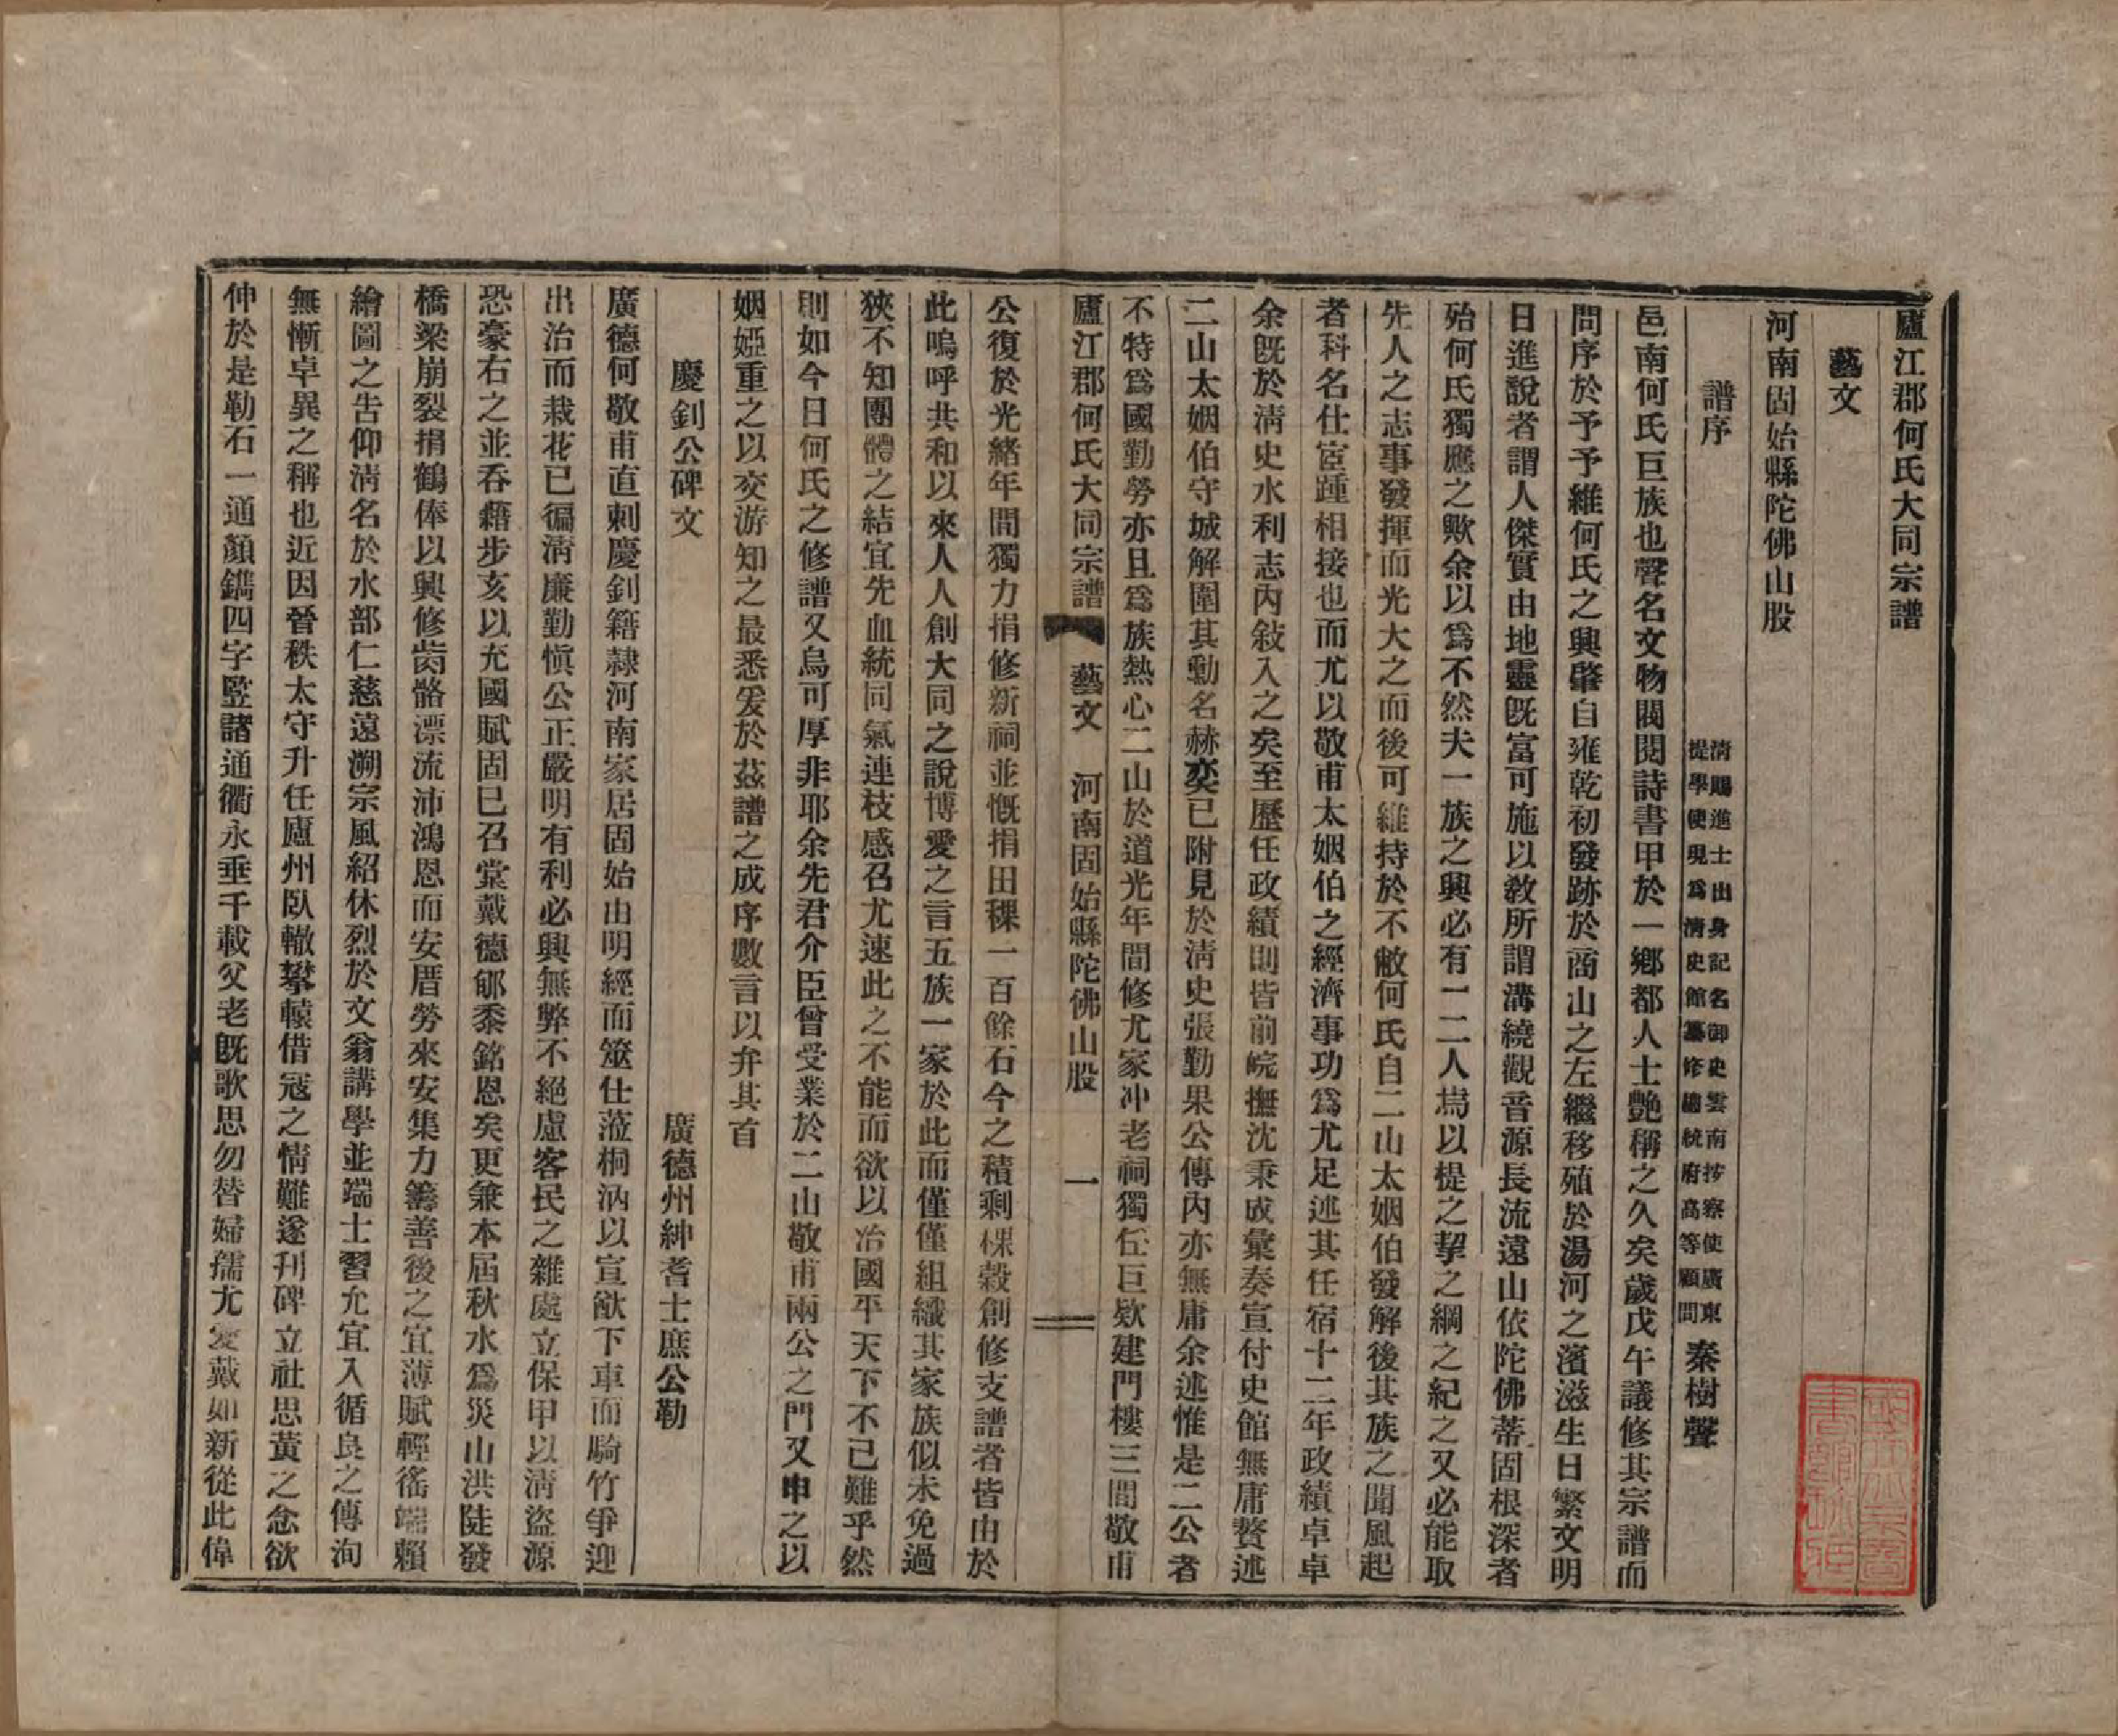 廬江郡何氏大同宗譜
藝文
河南固始縣陀佛山股
譜序
清賜進士出身記名御史雲南按察使廣東
提學使現爲清史館纂修總統府高等顧問
秦樹聲
邑南何氏巨族也聲名文物閥閱詩書甲於一鄉都人士艷稱之久矣歲戊午議修其宗譜而
問序於予予維何氏之興肇自雍乾初發跡於商山之左繼移殖於湯河之濱滋生日繁文明
日進說者謂人傑實由地靈既富可施以教所謂溝繞觀音源長流遠山依陀佛蒂固根深者
殆何氏獨應之歟余以爲不然夫一族之興必有一二人焉以提之挈之綱之紀之又必能取
先人之志事發揮而光大之而後可維持於不敝何氏自二山太姻伯發解後其族之聞風起
者科名仕宦踵相接也而尤以敬甫太姻伯之經濟事功爲尤足述其任宿十二年政績卓卓
余既於清史水利志內敍入之矣至歷任政績則皆前皖撫沈秉成彙奏宣付史館無庸贅述
二山太姻伯守城解圍其勳名赫奕已附見於清史張勤果公傳內亦無庸余述惟是二公者
不特爲國勤勞亦且爲族熱心二山於道光年間修尤家冲老祠獨任巨欵建門樓三間敬甫
廬江郡何氏大同宗譜 藝文 河南固始縣陀佛山股 一
公復於光緒年間獨力捐修新祠並慨捐田稞一百餘石今之積剩稞穀創修支譜者皆由於
此嗚呼共和以來人人創大同之說博愛之言五族一家於此而僅僅組織其家族似未免過
狹不知團體之結宜先血統同氣連枝感召尤速此之不能而欲以治國平天下不已難乎然
則如今日何氏之修譜又烏可厚非耶余先君介臣曾受業於二山敬甫兩公之門又申之以
姻婭重之以交游知之最悉爰於茲譜之成序數言以弁其首
慶釗公碑文
廣德州紳耆士庶公勒
廣德何敬甫直刺慶釗籍隸河南家居固始由明經而筮仕蒞桐汭以宣猷下車而騎竹爭迎
出治而栽花已徧清廉勤愼公正嚴明有利必興無弊不絕慮客民之雜處立保甲以清盜源
恐豪右之並吞藉步亥以充國賦固已召棠戴德郇黍銘恩矣更兼本屆秋水爲災山洪陡發
橋梁崩裂捐鶴俸以興修胔骼漂流沛鴻恩而安厝勞來安集力籌善後之宜薄賦輕徭端賴
繪圖之吿仰清名於水部仁慈遠溯宗風紹休烈於文翁講學並端士習允宜入循良之傳洵
無慚卓異之稱也近因晉秩太守升任廬州臥轍攀轅借寇之情難遂刊碑立社思黃之念欲
伸於是勒石一通顏鐫四字豎諸通衢永垂千載父老既歌思勿替婦孺尤愛戴如新從此偉